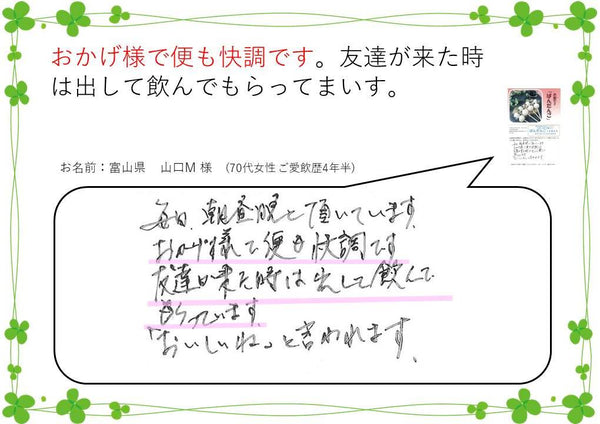 おかげ様で便も快調です。友達が来た時
は出して飲んでもらってまいす。
お名前：富山県 山口M 様 (70代女性 ご愛飲歴4年半)
毎日、朝昼晩と頂いています。
おかげ様で便も快調です
友達が来た時は出して飲んで
もらっています。
「おいしいね」と言われます。